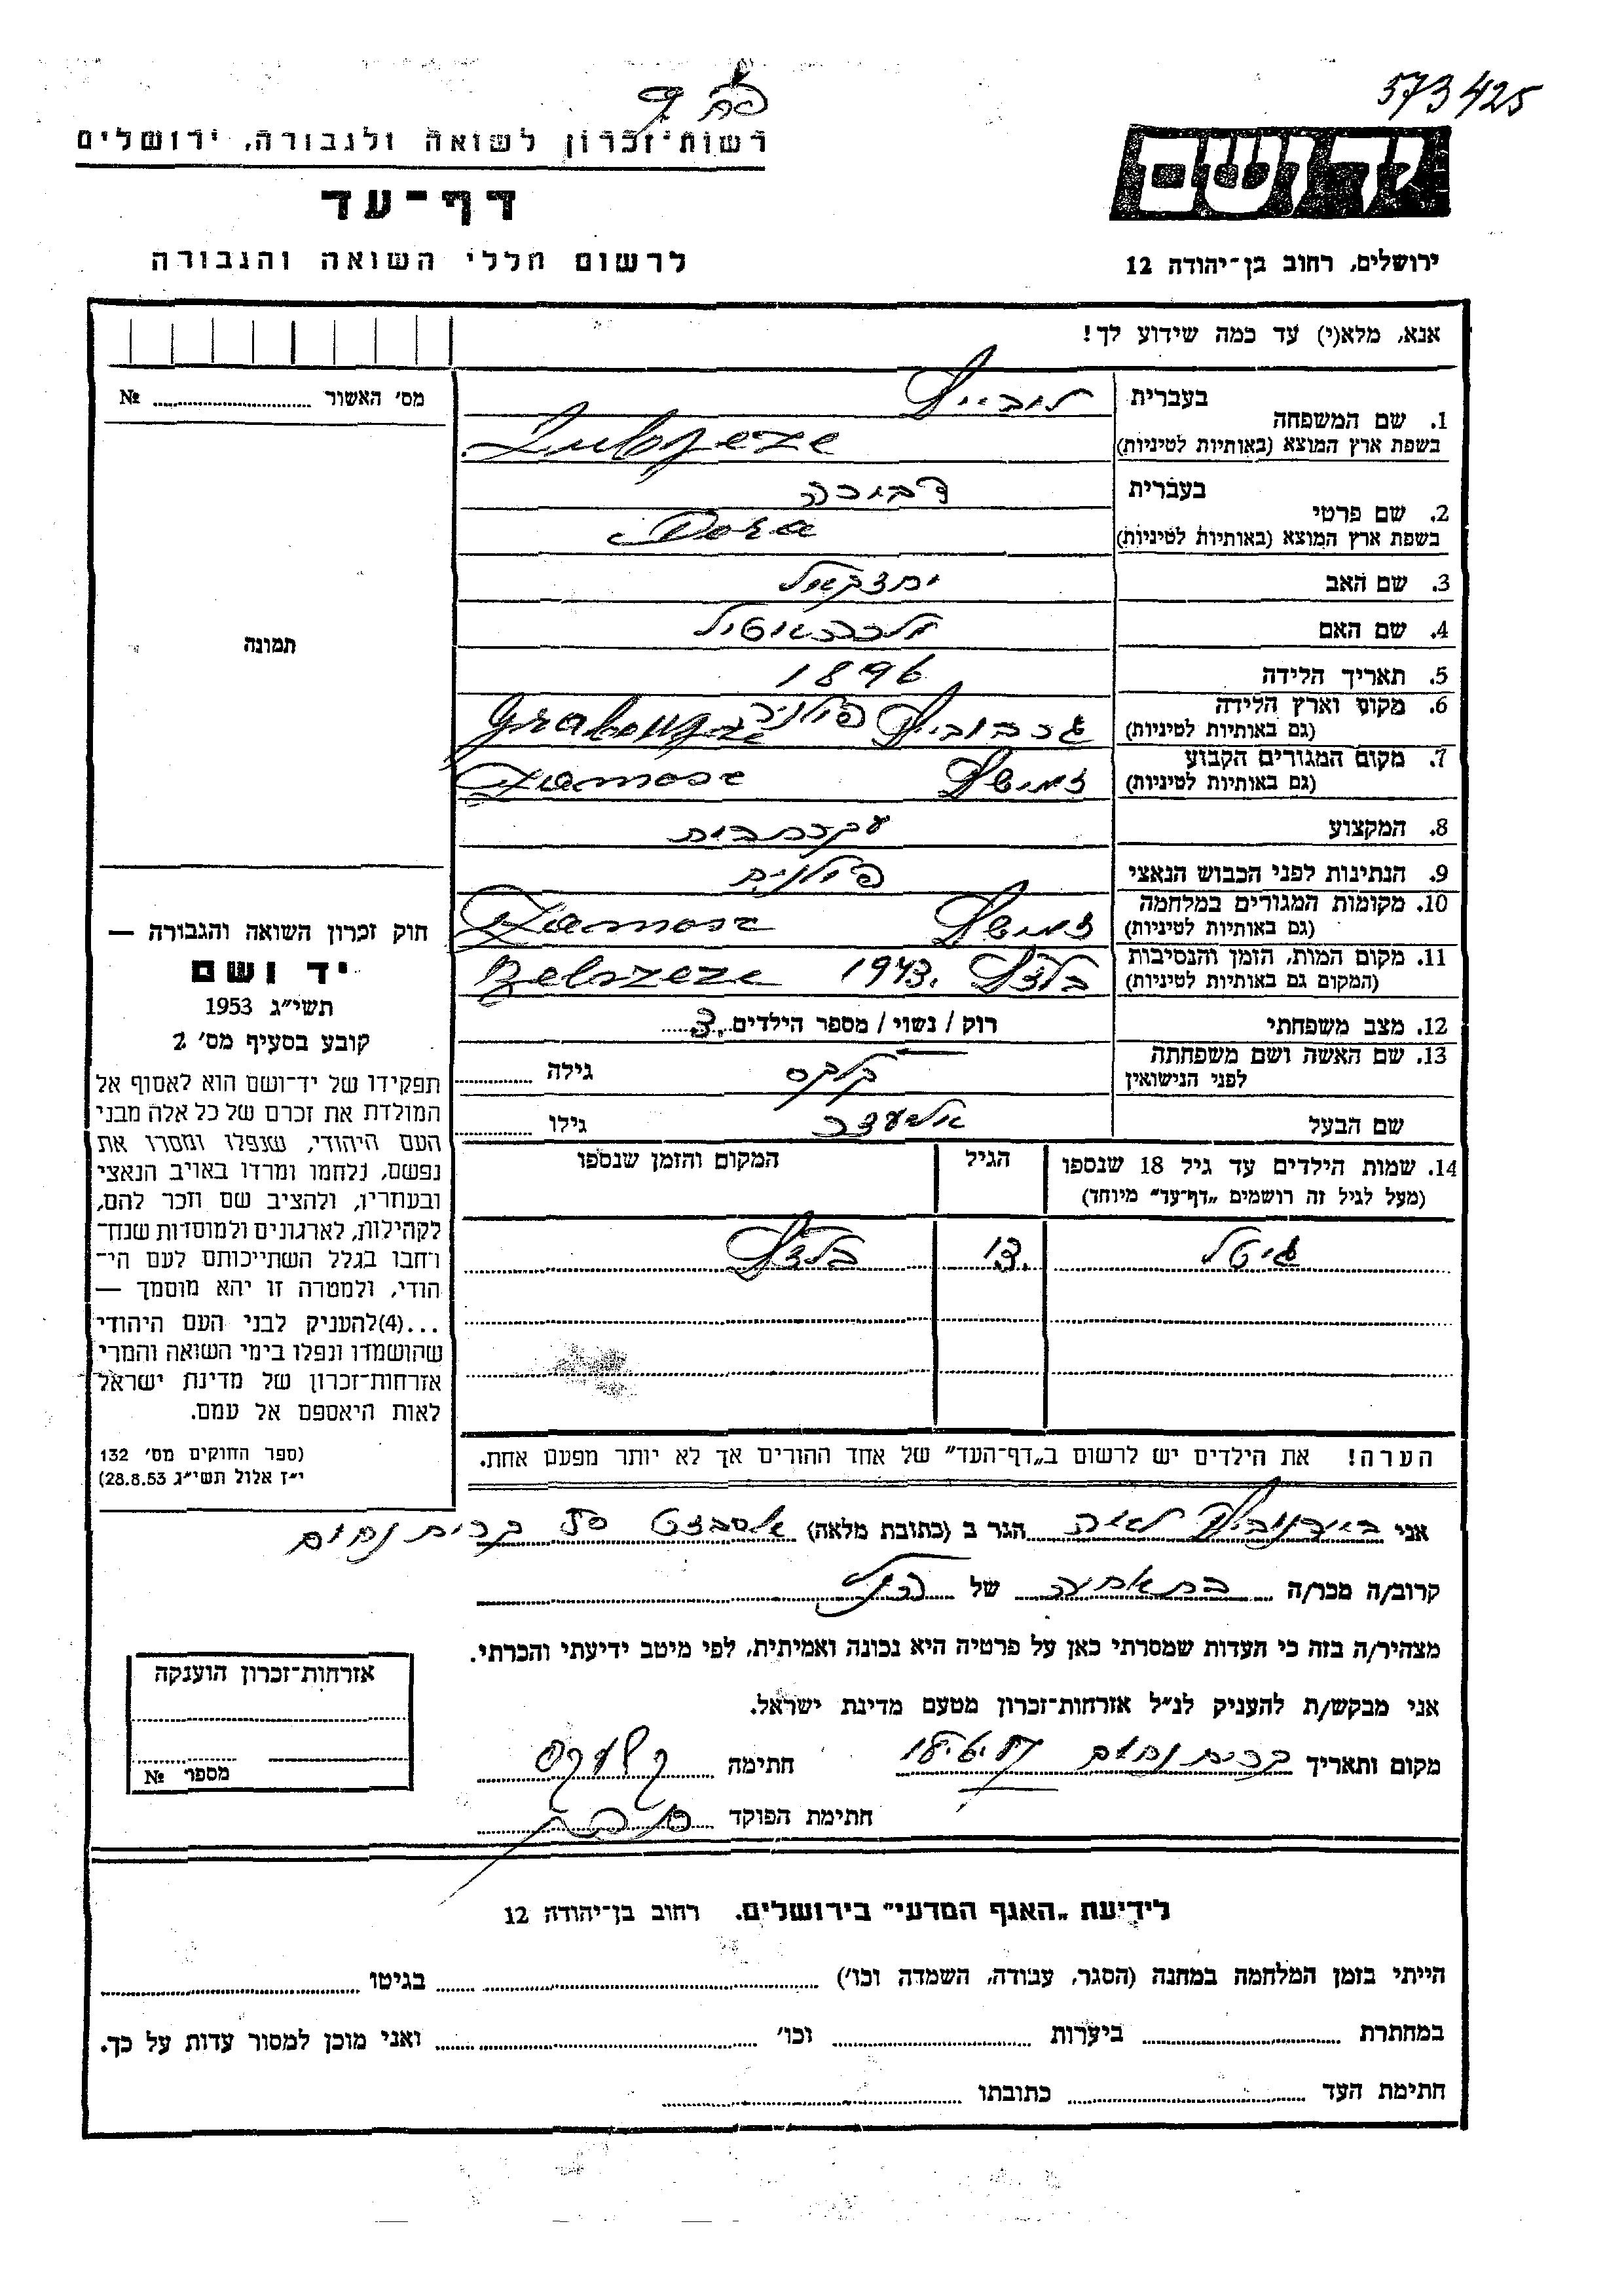 573425
רשות־זכרון לשואה ולגבורה, ירושלים
דף־עד
לרשום חללי השואה והגבורה
יד ושם
ירושלים, רחוב בן־יהודה 12
אנא, מלא(י) עד כמה שידוע לך!
מס׳ האשור № 
1. שם המשפחה
בעברית
בשפת ארץ המוצא (באותיות לטיניות)
2. שם פרטי
בעברית דבורה
בשפת ארץ המוצא (באותיות לטיניות) Dora
3. שם האב יחזקאל
4. שם האם
5. תאריך הלידה 1896
6. מקום וארץ הלידה
(גם באותיות לטיניות)
7. מקום המגורים הקבוע
(גם באותיות לטיניות) Zamosz
8. המקצוע עקרת בית
9. הנתינות לפני הכבוש הנאצי פולנית
10. מקומות המגורים במלחמה
(גם באותיות לטיניות) Zamosz
11. מקום המות, הזמן והנסיבות
(המקום גם באותיות לטיניות) בלזץ 1943. Belszeze
12. מצב משפחתי רוק / נשוי / מספר הילדים 3.
13. שם האשה ושם משפחתה
לפני הנישואין
גילה
שם הבעל אליעזר גילו
14. שמות הילדים עד גיל 18 שנספו
(מעל לגיל זה רושמים „דף־עד” מיוחד)
הגיל
המקום והזמן שנספו
גיטל 13. בלזץ
הערה! את הילדים יש לרשום ב„דף־העד” של אחד ההורים אך לא יותר מפעם אחת.
תמונה
חוק זכרון השואה והגבורה —
יד ושם
תשי״ג 1953
קובע בסעיף מס׳ 2
תפקידו של יד־ושם הוא לאסוף אל
המולדת את זכרם של כל אלה מבני
העם היהודי, שנפלו ומסרו את
נפשם, נלחמו ומרדו באויב הנאצי
ובעוזריו, ולהציב שם וזכר להם,
לקהילות, לארגונים ולמוסדות שנח־
רבו בגלל השתייכותם לעם הי־
הודי, ולמטרה זו יהא מוסמך —
...(4)להעניק לבני העם היהודי
שהושמדו ונפלו בימי השואה והמרי
אזרחות־זכרון של מדינת ישראל
לאות היאספם אל עמם.
(ספר החוקים מס׳ 132
י״ז אלול תשי״ג 28.8.53)
אני לאה הגר ב (כתובת מלאה) קרית נחום
קרוב/ה מכר/ה בת אחיה של הנ״ל
מצהיר/ה בזה כי העדות שמסרתי כאן על פרטיה היא נכונה ואמיתית, לפי מיטב ידיעתי והכרתי.
אני מבקש/ת להעניק לנ״ל אזרחות־זכרון מטעם מדינת ישראל.
מקום ותאריך קרית נחום חתימה
חתימת הפוקד
אזרחות־זכרון הוענקה
מספר №
לידיעת „האגף המדעי” בירושלים. רחוב בן־יהודה 12
הייתי בזמן המלחמה במחנה (הסגר, עבודה, השמדה וכו׳) בגיטו
במחתרת ביערות וכו׳ ואני מוכן למסור עדות על כך.
חתימת העד כתובתו